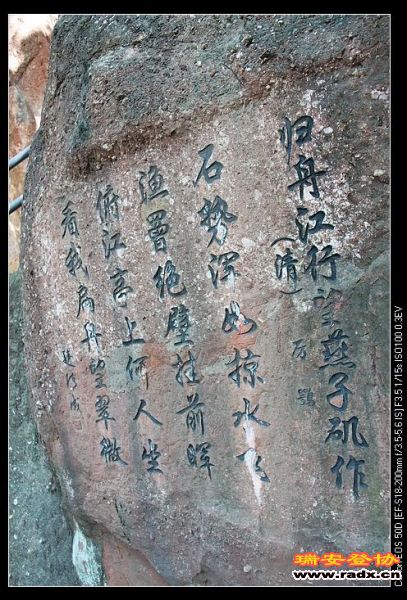 归舟江行望燕子矶作
(清) 厉鹗
石势浑如掠水飞
渔罾绝壁挂前晖
俯江亭上何人坐
看我扁舟望翠微
瑞安登协
www.radx.cn
Canon EOS 50D [EF-S18-200mm f/3.5-5.6 IS] F3.5 1/15s ISO100 0.3EV